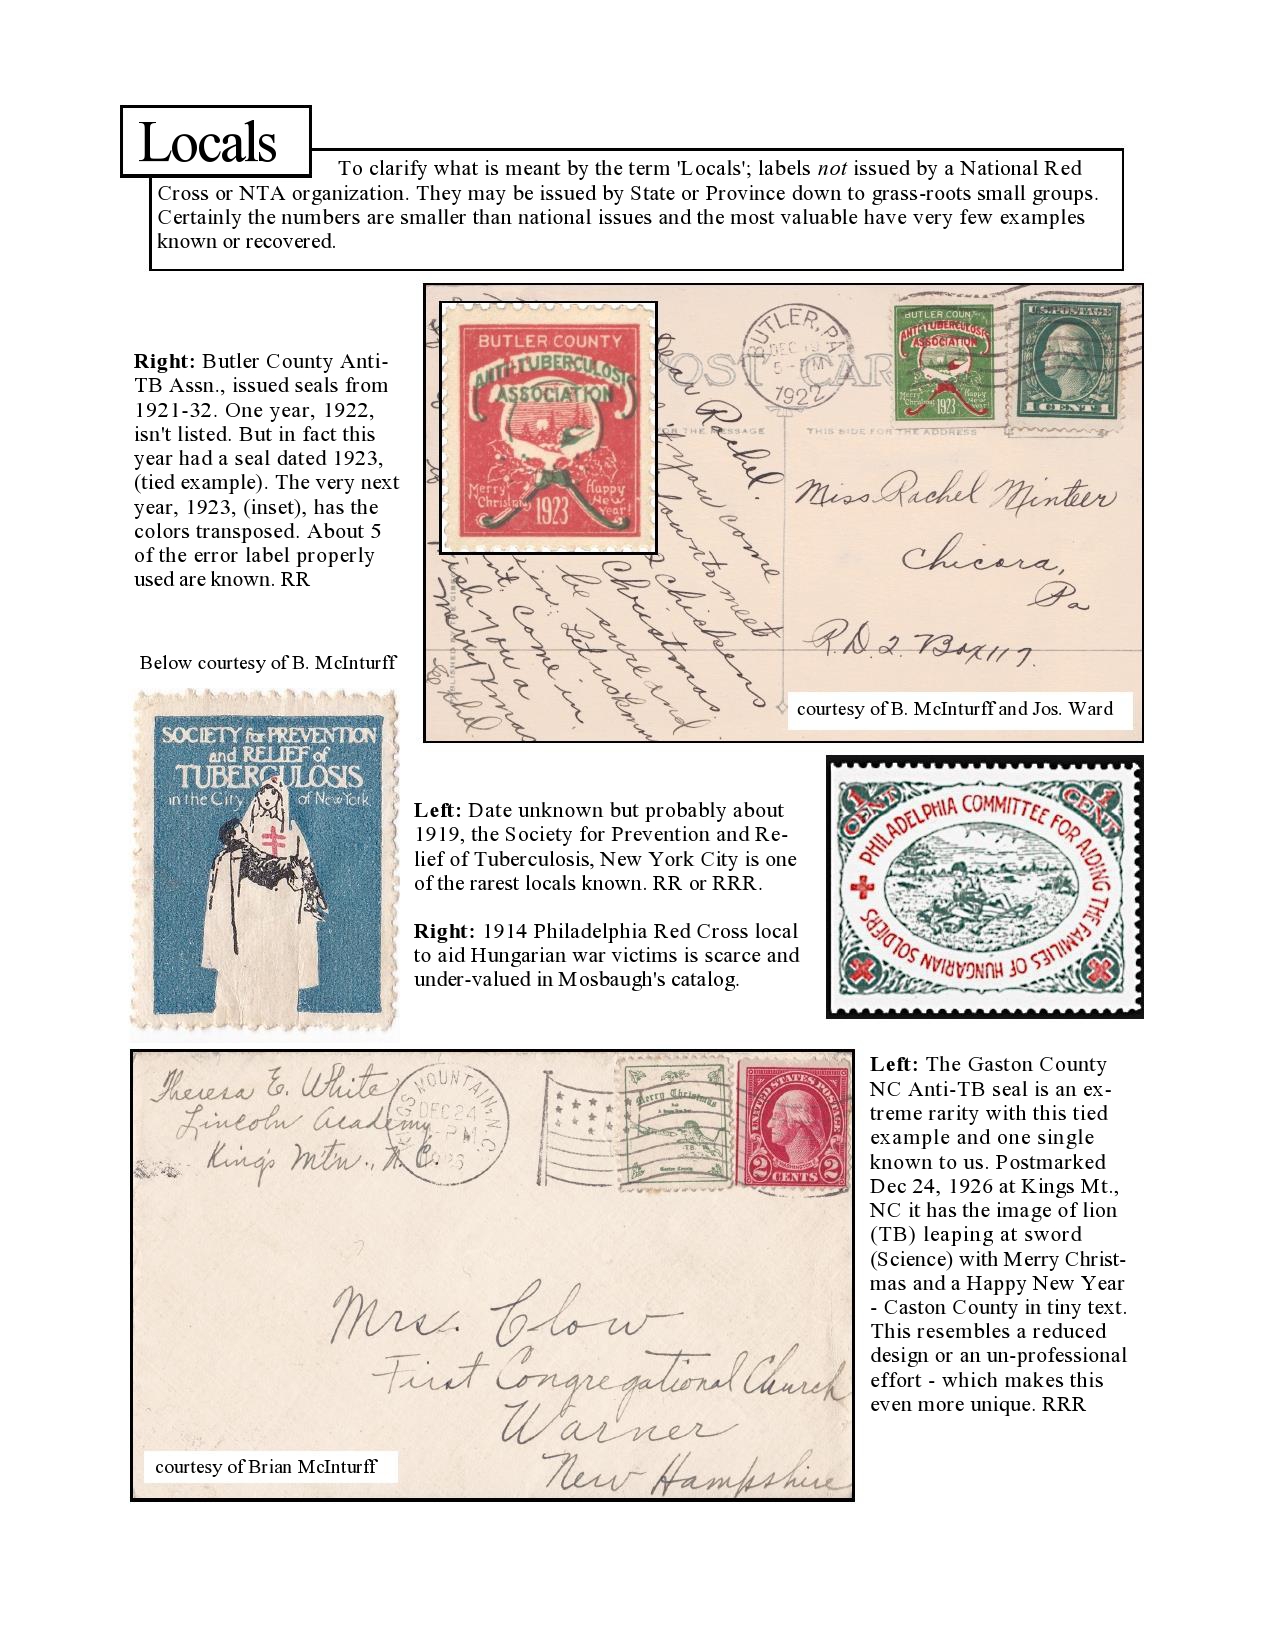 Locals
To clarify what is meant by the term 'Locals'; labels not issued by a National Red
Cross or NTA organization. They may be issued by State or Province down to grass-roots small groups.
Certainly the numbers are smaller than national issues and the most valuable have very few examples
known or recovered.
Right: Butler County Anti-
TB Assn., issued seals from
1921-32. One year, 1922,
isn't listed. But in fact this
year had a seal dated 1923,
(tied example). The very next
year, 1923, (inset), has the
colors transposed. About 5
of the error label properly
used are known. RR
BUTLER COUNTY
ANTI-TUBERCULOSIS
ASSOCIATION
Merry Christmas
Happy New Year!
1923
BUTLER, PA
DEC 19
5-PM
1922
POST CARD
BUTLER COUNTY
ANTI-TUBERCULOSIS
ASSOCIATION
Merry Christmas
Happy New Year!
1923
U.S. POSTAGE
1 CENT 1
FOR THE MESSAGE
THIS SIDE FOR THE ADDRESS
Dear Rachel.
if you come
down to meet
chickens
Christmas
be sure and
in. Let us know
come in
wish you a
merry Xmas
Ethel
Miss Rachel Minteer
Chicora,
Pa
R.D. 2. Box 117.
courtesy of B. McInturff and Jos. Ward
Below courtesy of B. McInturff
SOCIETY for PREVENTION
and RELIEF of
TUBERCULOSIS
in the City of New York
Left: Date unknown but probably about
1919, the Society for Prevention and Re-
lief of Tuberculosis, New York City is one
of the rarest locals known. RR or RRR.
Right: 1914 Philadelphia Red Cross local
to aid Hungarian war victims is scarce and
under-valued in Mosbaugh's catalog.
1 CENT
CENT 1
PHILADELPHIA COMMITTEE FOR AIDING THE FAMILIES OF HUNGARIAN SOLDIERS
Theresa E. White
Lincoln Academy
Kings Mtn., N.C.
KINGS MOUNTAIN, N.C.
DEC 24
PM
1926
Merry Christmas
Gaston County
UNITED STATES POSTAGE
WASHINGTON
2 CENTS 2
Mrs. Clow
First Congregational Church
Warner
New Hampshire
courtesy of Brian McInturff
Left: The Gaston County
NC Anti-TB seal is an ex-
treme rarity with this tied
example and one single
known to us. Postmarked
Dec 24, 1926 at Kings Mt.,
NC it has the image of lion
(TB) leaping at sword
(Science) with Merry Christ-
mas and a Happy New Year
- Caston County in tiny text.
This resembles a reduced
design or an un-professional
effort - which makes this
even more unique. RRR